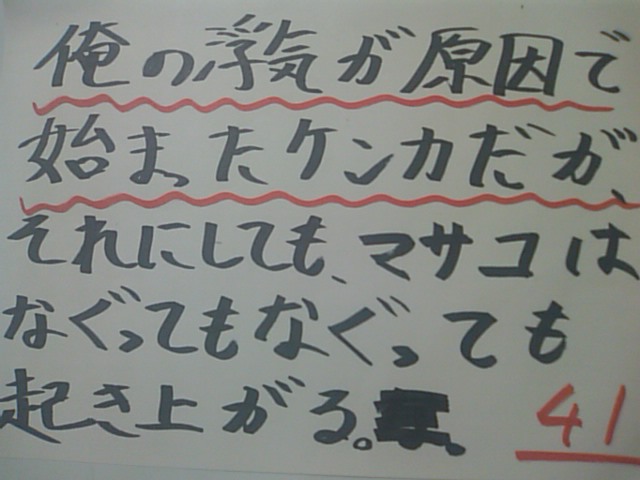 俺の浮気が原因で
始まったケンカだが、
それにしても、マサコは
なぐってもなぐっても
起き上がる。
41